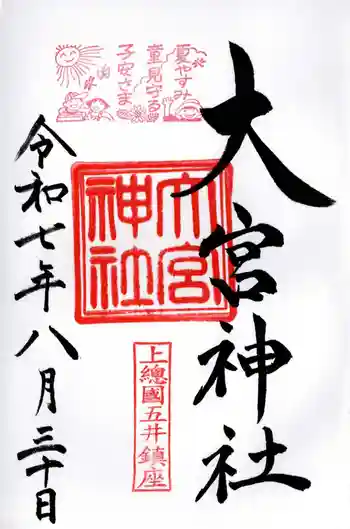 大宮神社
夏やすみ
童見守る
子安さま
大宮
神社
上總國五井鎮座
令和七年八月三十日